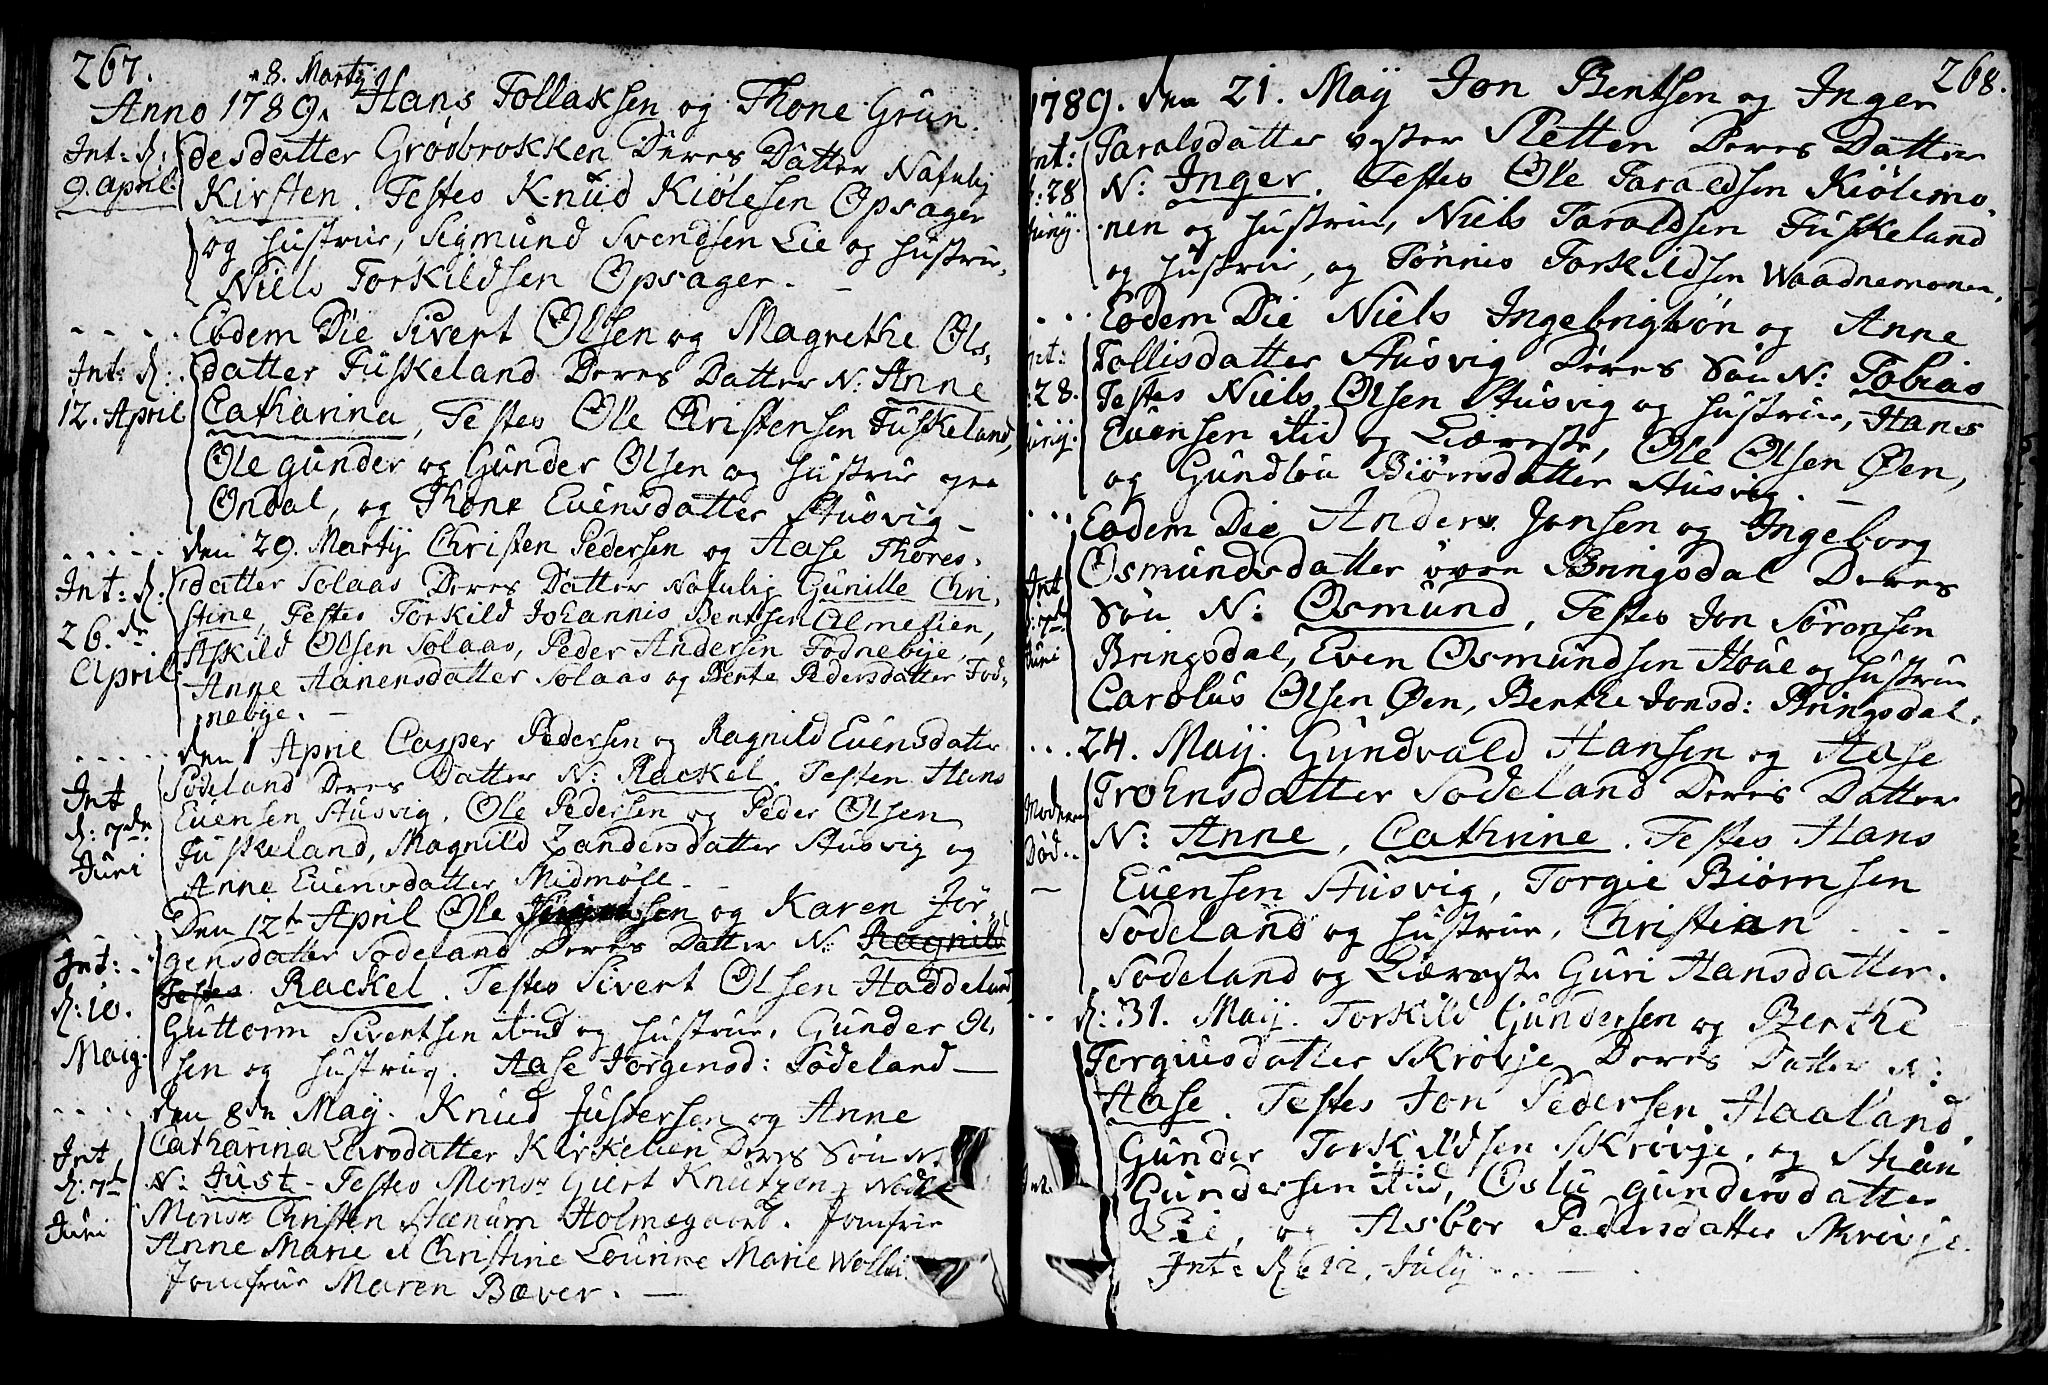 267.
8. Martij
Anno 1789. Hans Tollaksen og Thone Grun
Int: d: desdatter Grosbrokken Deres Datter Nafnlig
9. April: Kirsten. Testes Knud Kiølesen Opsager
og Hustrue, Sigmund Svendsen Lie og Hustrue,
Niels Torkildsen Opsager. —
Eodem Die Sivert Olsen og Magrethe Ols-
Int: d: datter Fuskeland Deres Datter N: Anne
12. April Catharina, Testes Ole Christensen Fuskeland,
Ole gunder og Gunder Olsen og Hustrue
Ondal, og Thone Evensdatter Stusvig –
den 29. Martij Christen Pedersen og Aase Thores-
Int: d: datter Solaas Deres Datter Nafnlig Gunille Chri-
26. de stine, Testes Torkild Johannis Bentsen
Askild Olsen Solaas, Peder Andersen Fodnebye,
April Anne Aanensdatter Solaas og Berte Pedersdatter Fod-
nebye. –
den 1 April Casper Pedersen og Ragnild Evensdatter
Int Sodeland Deres Datter N: Rackel. Testes Hans
d: 7de Evensen Stusvig. Ole Pedersen og Peder Olsen
Fuskeland, Magnild Zandersdatter Stusvig og
Juni Anne Evensdatter Midmøll –
Den 12te April Ole og Karen Jør-
Int: gensdatter Sodeland Deres Datter N: Ragnild
Testes Rackel. Testes Sivert Olsen Haddeland
d: 10. Guttorm Sivertsen og Hustrue, Gunder Ol,
Maij. sen og Hustrue. Aase Jørgensd: Sødeland —
den 8de May. Knud Justersen og Anne
Int Catharina Larsdatter Kirkelien Deres Søn
d: 7de N: Just – Testes Monsr Giert Knutzen
Juni Monsr Christen Stænum Holmegaard. Jomfrue
Anne Marie et Christine Lourine Marie
Jomfrue Maren Bæver. —
268.
1789. den 21. Maÿ Jon Bentsen og Inger
Int: Taralsdatter vester Sletten Deres Datter
d: 28 N: Inger. Testes Ole Taraldsen Kiølemo-
Junij. nen og Hustrue, Niels Taraldsen Fuskeland
og Hustrue, og Tønnis Torkildsen Waadnemonen.
Eodem Die Niels Ingebrigtsøn og Anne
Int: Tollisdatter Stusvig Deres Søn N: Tobias
28. Testes Niels Olsen Stusvig og Hustrue, Hans
Junij. Evensen stid og Kiæreste, Ole Olsen Øen,
og Gundlou Biørnsdatter Stusvig. —
Eodem Die Anders Jonsen og Ingeborg
Int Osmundsdatter øvre Bringsdal Deres
d: 7de Søn N: Osmund, Testes Jon Sørensen
Juni Bringsdal, Even Osmundsen Houe og Hustrue
Carolus Olsen Øen, Berthe Jonsd: Bringsdal.
24. Maij. Gundvald Hansen og Aase
Troensdatter Sodeland Deres Datter
Moderen Død. N: Anne, Cathrine. Testes Hans
Evensen Stusvig, Torgie Biørnsen
Sodeland og Hustrue, Christian
Sodeland og Kiæreste Guri Hansdatter.
d: 31. Maij. Torkild Gundersen og Berthe
Torgiusdatter Skrøvje Deres Datter N:
Aase. Testes Jon Pedersen Haaland.
Gunder Torkildsen Skrøvje, og Stian
Int. Gundersen stid, Oslu gundersdatter
Lie, og Asbor Pedersdatter Skrøvje.
Int: d: 12. Julij